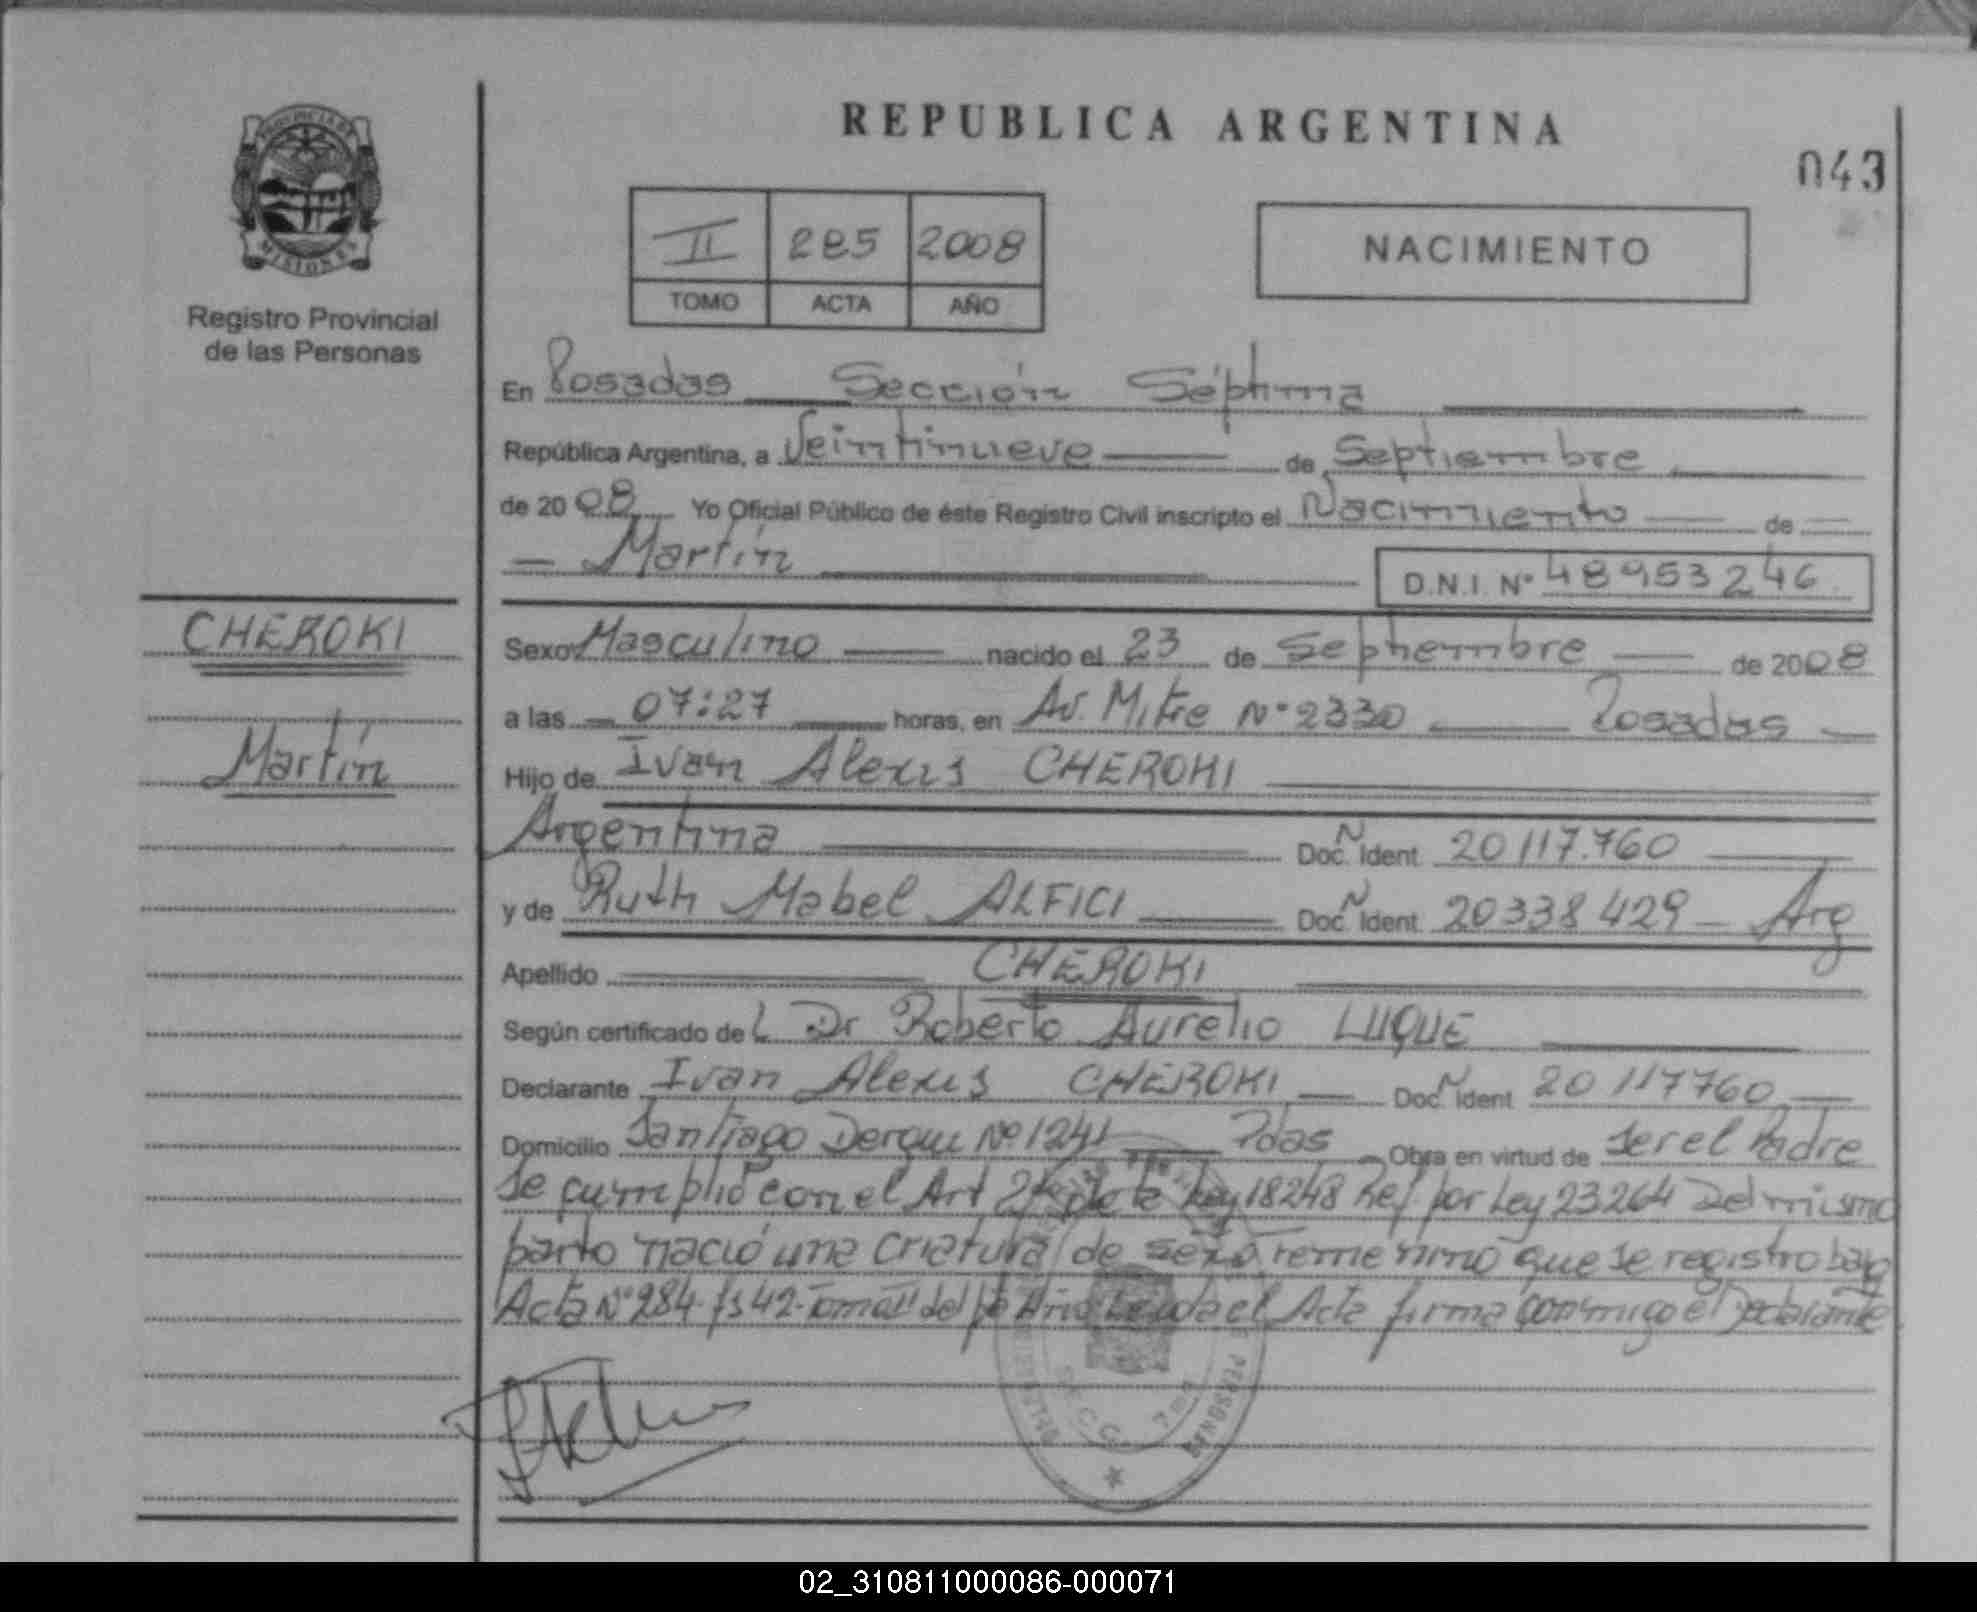 REPUBLICA ARGENTINA
043
PROVINCIA DE
MISIONES
Registro Provincial
de las Personas
II 285 2008
TOMO ACTA AÑO
NACIMIENTO
En Posadas Sección Séptima
República Argentina, a Veintinueve de Septiembre
de 2008 Yo Oficial Público de éste Registro Civil inscripto el Nacimiento de
Martín
D.N.I. Nº 48953246
CHEROKI
Martín
Sexo Masculino nacido el 23 de Septiembre de 2008
a las 07:27 horas, en Av. Mitre Nº 2330 Posadas
Hijo de Ivan Alexis CHEROKI
Argentina Doc. Ident 20117.760
y de Ruth Mabel ALFICI Doc. Ident. 20338429 - Arg
Apellido CHEROKI
Según certificado del Dr Roberto Aurelio LUQUE
Declarante Ivan Alexis CHEROKI Doc. Ident 20117760
Domicilio Santiago Derqui Nº 1241 Pdas Obra en virtud de ser el Padre
Se cumplió con el Art 2 de la Ley 18248 Ref. por Ley 23264 Del mismo
parto nació una criatura de sexo femenino que se registro bajo
Acta Nº 284 fs 42 Tomo II del pte Año Leida el Acta firma conmigo el Declarante
PERSONAS
SECC. 7ma
02_310811000086-000071